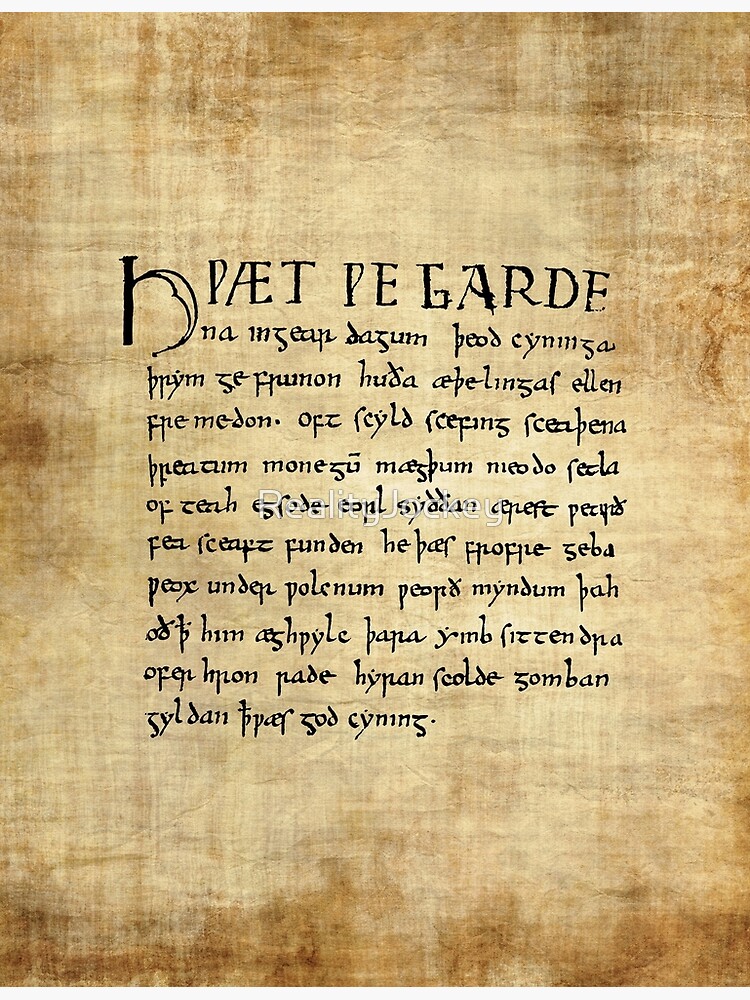 HǷÆT ǷE GARDE
na ingear dagum þeod cyninga
þrym ge frunon huða æþelingas ellen
fremedon. oft scyld scefing sceaþena
þreatum monegū mægþum meodo setla
of teah egsode eorl syððan ærest ƿearð
fea sceaft funden heþæs frofre geba
ƿeox under ƿolcnum ƿeorð myndum þah
oð ꝥ him æghƿylc þara ymb sittendra
ofer hron rade hyran scolde gomban
gyldan ꝥƿæs god cyning.
RealityJockey